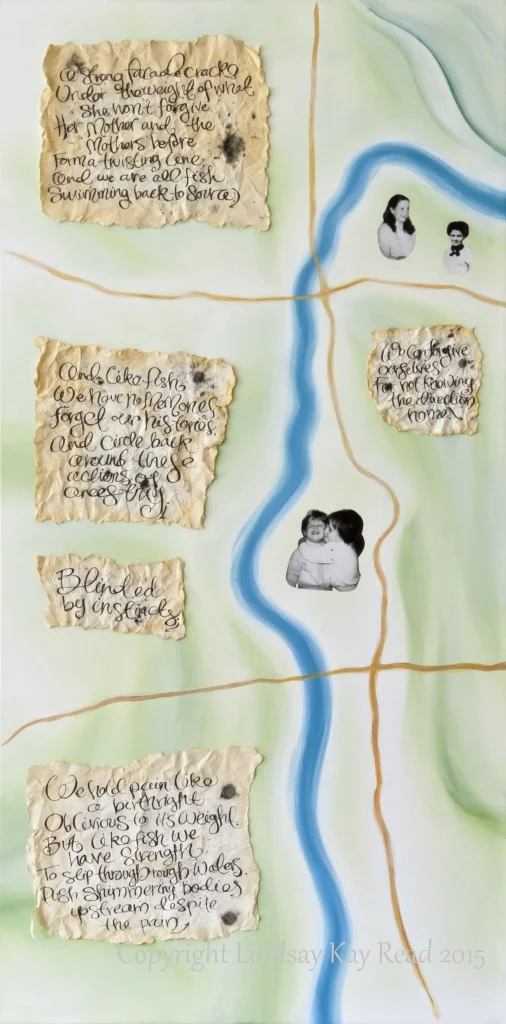 A strong facade cracks
Under the weight of what
She won't forgive
Her Mother and the
Mothers before
Form a twisting line,
(and we are all fish
Swimming back to source)
And, like fish,
We have no memories
Forget our histories
And circle back
around these
actions of
ancestry,
We can forgive
ourselves
For not knowing
the direction
home
Blinded
by instincts
We hold pain like
a birthright
Oblivious to its weight.
But like fish we
have strength
To slip through rough waters.
Push shimmering bodies
upstream despite
the pain
Copyright Lindsay Kay Read 2015